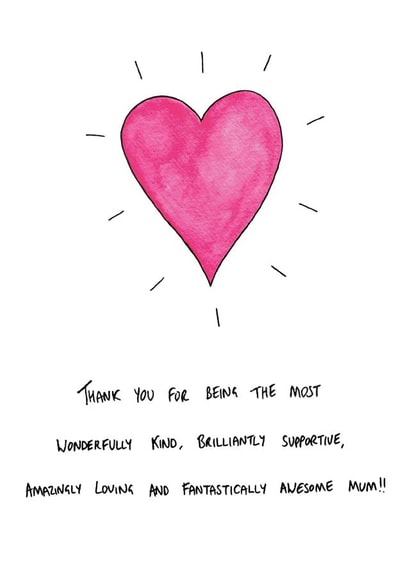 Thank you for being the most
wonderfully kind, brilliantly supportive,
amazingly loving and fantastically awesome mum!!